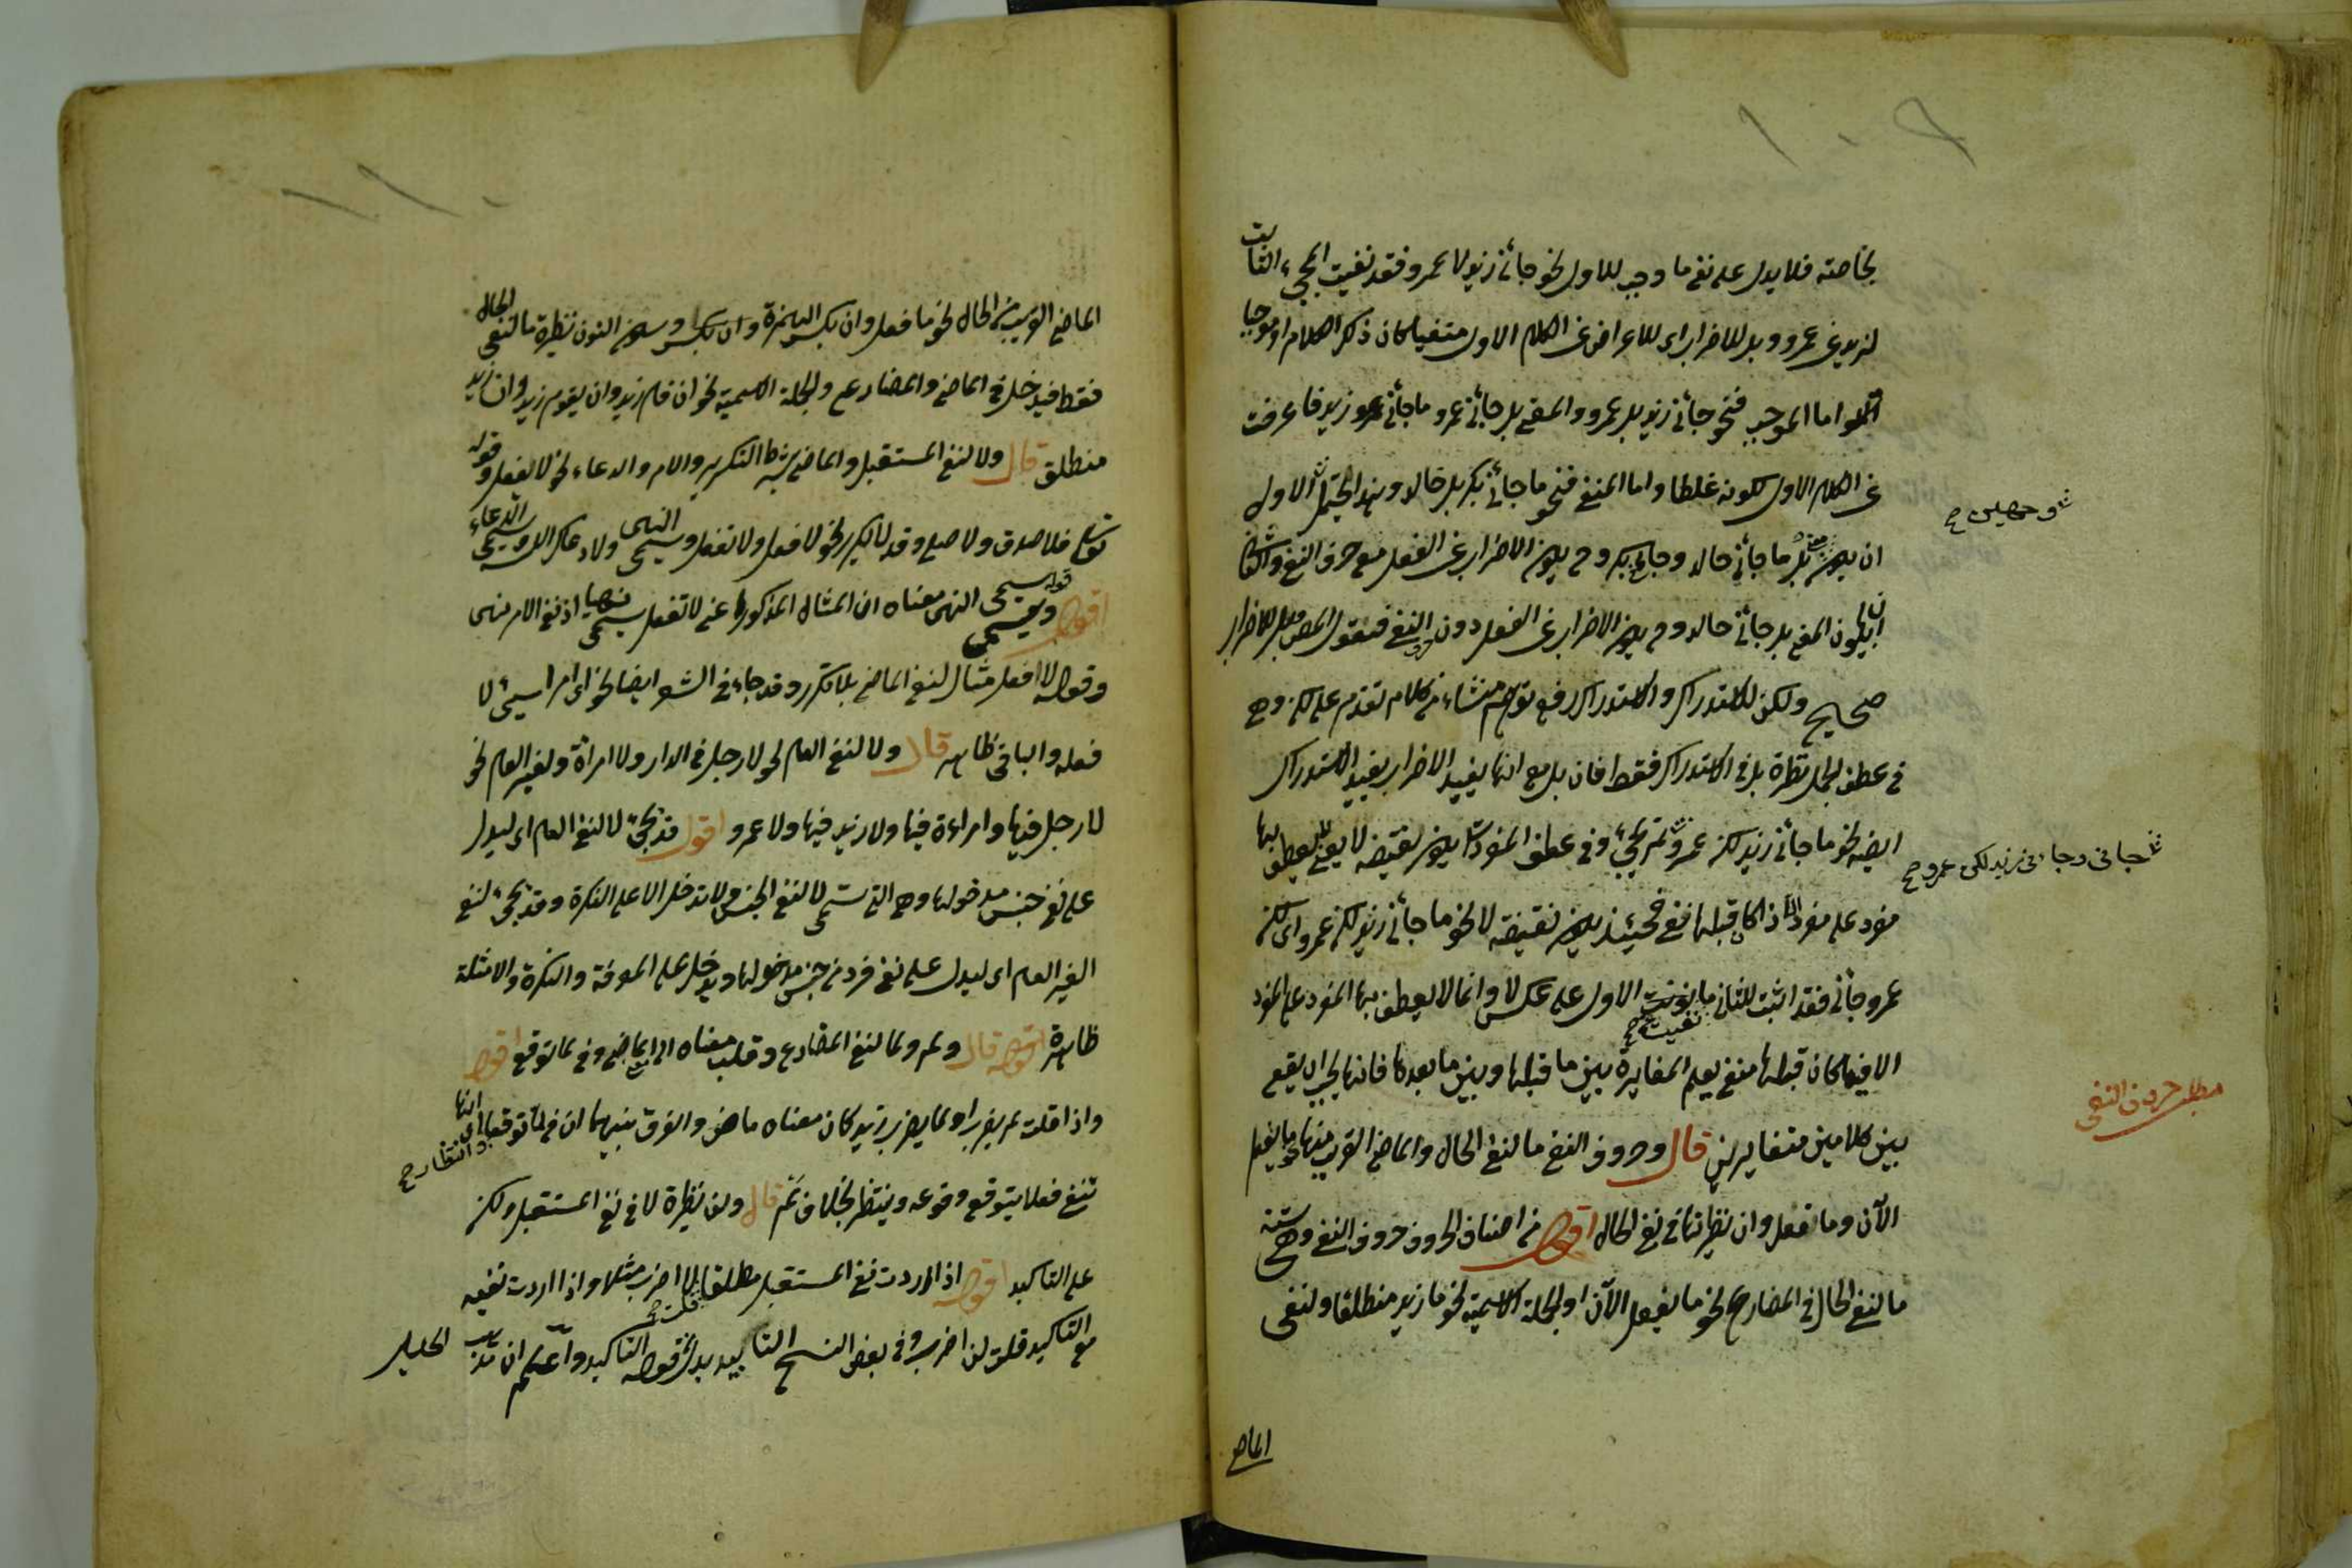 بخاصته فلا يدل على نفى ما وجب للاول نحو جائنى زيد لا عمرو فقد نفيت المجىء الثابت
لزيد عن عمرو وبل للاضراب اى للاعراض عن الكلام الاول منفيا كان ذلك الكلام او موجبا
اما الموجب فنحو جائنى زيد بل عمرو والمعنى بل جائنى عمرو وما جائنى زيد فاعرضت
عن الكلام الاول لكونه غلطا واما المنفى فنحو ما جائنى بكر بل خالد وهذا يحتمل الاول
وجهين
ان يكون بل ما جائنى خالد وجائنى بكر وح يكون الاضراب عن الفعل مع حرف النفى والثانى
ان يكون المعنى بل جائنى خالد وح يكون الاضراب عن الفعل دون النفى فنقول المص بل للاضراب
صحيح ولكن للاستدراك والاستدراك رفع توهم منشاء من كلام تقدم على لكن وهى
فى عطف الجمل نظيرة بل فى الاستدراك فقط فان بل مع انها يفيد الاضراب يفيد الاستدراك
ايضا نحو ما جائنى زيد لكن عمرو لم يجىء وفى عطف المفردات يكون نقيضه لا يعنى يعطف بها
جائنى وجائنى زيد لكن عمرو
مفرد على مفرد اذا كان قبلها نفى فحينئذ يكون نقيضه لا نحو ما جائنى زيد لكن عمرو اى لكن
عمرو جائنى فقد اثبت للثانى ما نفيت الاول على عكس لا وانما لا يعطف بها المفرد على المفرد
نفيت
الا فيما كان قبلها منفى ليعلم المغايرة بين ما قبلها وبين ما بعدها فانها يجب ان يقع
مطلب حروف النفى
بين كلامين متغايرين قال وحروف النفى ما لنفى الحال والماضى القريب منها نحو ما يفعل
الآن وما فعل وان نظيرتها فى نفى الحال اقول من اصناف الحروف حروف النفى وهى ستة
ما لنفى الحال فى المضارع نحو ما يفعل الآن او الجملة الاسمية نحو ما زيد منطلقا ولنفى
الماضى
الماضى القريب من الحال نحو ما فعل وان بكسر الهمزة وسكون النون نظيرة ما لنفى الحال
فقط فيدخل فى الماضى والمضارع والجملة الاسمية نحو ان قام زيد وان يقوم زيد وان زيد
منطلق قال ولا لنفى المستقبل والماضى بشرط التكرير والامر والدعاء نحو لا تفعل وقوله
تعالى فلا صدق ولا صلى وقد لا يكرر نحو لا فعل ولا تفعل ويسمى النهى ولا رعاك الله ويسمى الدعاء
اقول قوله ويسمى النهى معناه ان المثال المذكور اعنى لا تفعل يسمى نهيا اذ نفى الامر نهى
وقوله لا فعل مثال لنفى الماضى بلا تكرر وقد جاء فى الشعر ايضا نحو اى امر سيئ لا
فعله والباقى ظاهر قال ولا لنفى العام نحو لا رجل فى الدار ولا امراة ولغير العام نحو
لا رجل فيها ولا امراءة فيها ولا زيد فيها ولا عمرو اقول قد يجىء لا لنفى العام اى ليدل
على نفى جنس مدخولها وهى التى تسمى لا لنفى الجنس ولا تدخل الا على النكرة وقد يجىء لنفى
الغير العام اى ليدل على نفى فرد من جنس مدخولها ويدخل على المعرفة والنكرة والامثلة
ظاهرة قال ولم ولما لنفى المضارع وقلب معناه الى الماضى وفى لما توقع اقول
واذا قلت لم يضرب او لما يضرب زيد كان معناه ما ضرب والفرق بينهما ان فى لما توقعا اى انها
وانتظار
تنفى فعلا يتوقع وقوعه وينتظر بخلاف لم قال ولن نظيرة لا فى نفى المستقبل ولكن
على التاكيد اقول اذا اردت نفى المستقبل مطلقا قلت لا اضرب مثلا واذا اردت نفيه
مع التاكيد قلت لن اضرب وفى بعض النسخ التابيد بدل قوله التاكيد واعلم ان مذهب الخليل